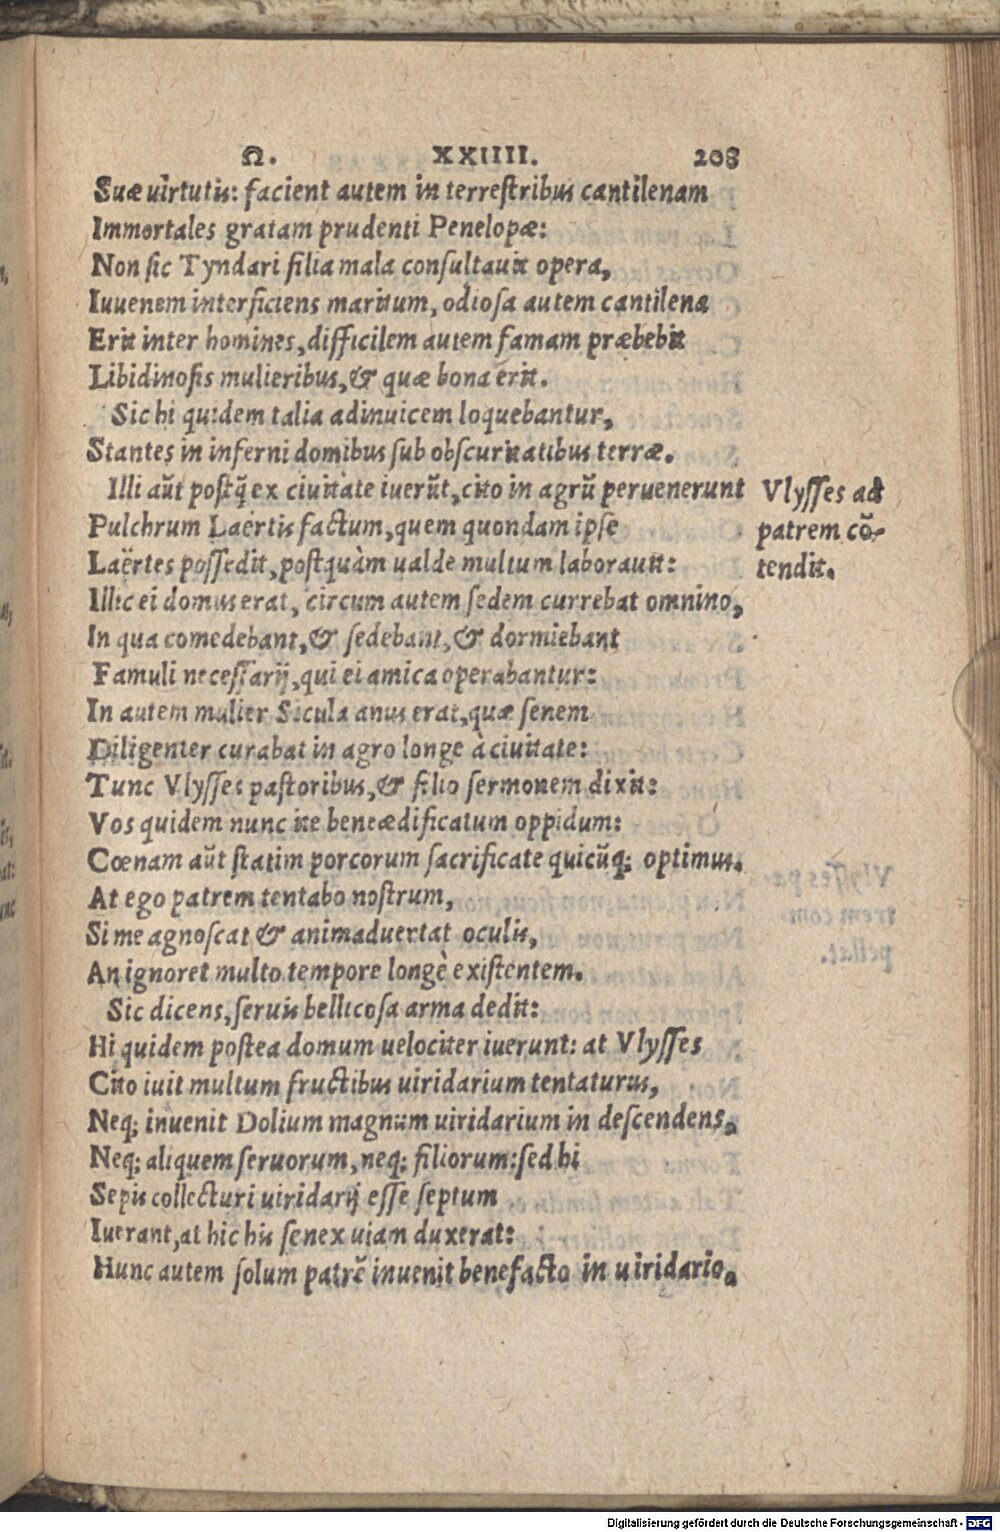 Ω. XXIIII. 208
Suæ uirtutis: facient autem in terrestribus cantilenam
Immortales gratam prudenti Penelopæ:
Non sic Tyndari filia mala consultauit opera,
Iuuenem interficiens maritum, odiosa autem cantilena
Erit inter homines, difficilem autem famam præbebit
Libidinosis mulieribus, & quæ bona erit.
Sic hi quidem talia adinuicem loquebantur,
Stantes in inferni domibus sub obscuritatibus terræ.
Illi aũt postq̃ ex ciuitate iuerũt, cito in agrũ peruenerunt
Pulchrum Laërtis factum, quem quondam ipse
Laërtes possedit, postquàm ualde multum laborauit:
Illic ei domus erat, circum autem sedem currebat omnino,
In qua comedebant, & sedebant, & dormiebant
Famuli necessarij, qui ei amica operabantur:
In autem mulier Sicula anus erat, quæ senem
Diligenter curabat in agro longe à ciuitate:
Tunc Vlysses pastoribus, & filio sermonem dixit:
Vos quidem nunc ite bene ædificatum oppidum:
Cœnam aũt statim porcorum sacrificate quicũq; optimus.
At ego patrem tentabo nostrum,
Si me agnoscat & animaduertat oculis,
An ignoret multo tempore longè existentem.
Sic dicens, seruis bellicosa arma dedit:
Hi quidem postea domum uelociter iuerunt: at Vlysses
Cito iuit multum fructibus uiridarium tentaturus,
Neq; inuenit Dolium magnum uiridarium in descendens,
Neq; aliquem seruorum, neq; filiorum: sed hi
Sepis collecturi uiridarij esse septum
Iuerant, at hic his senex uiam duxerat:
Hunc autem solum patrẽ inuenit benefacto in uiridario,
Vlysses ad
patrem cõ-
tendit.
Digitalisierung gefördert durch die Deutsche Forschungsgemeinschaft - DFG